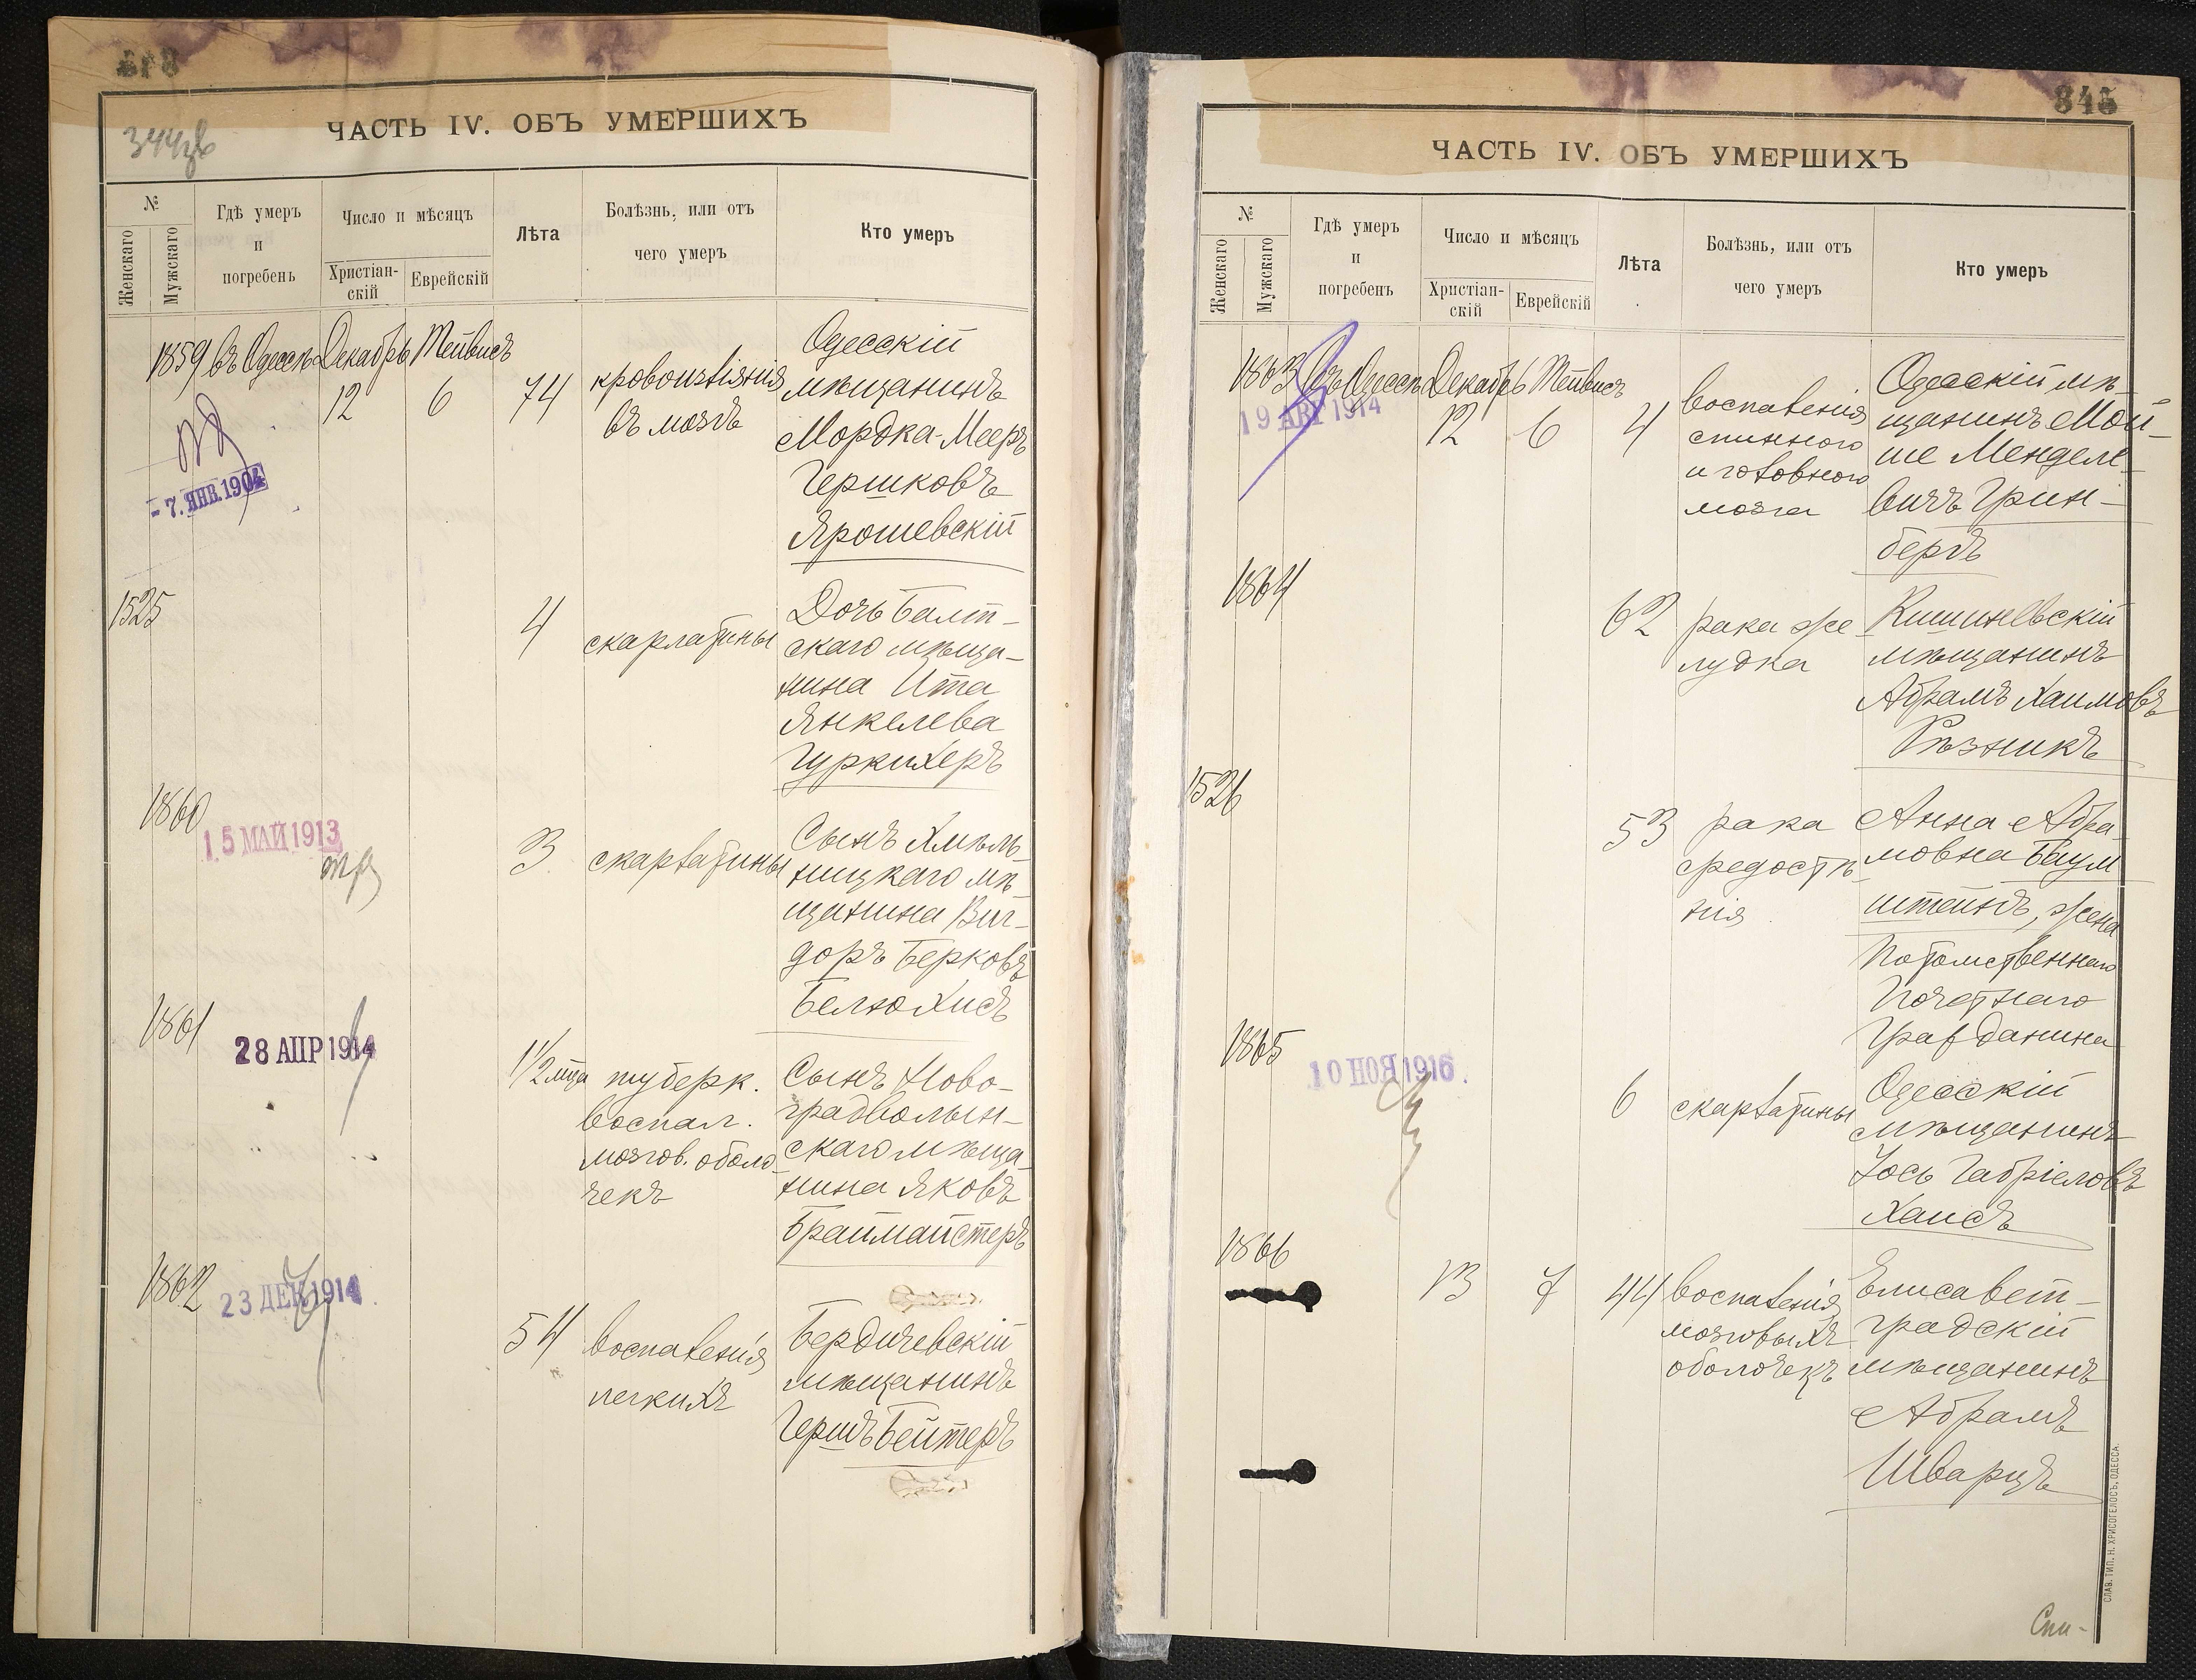 344 об
ЧАСТЬ IV. ОБЪ УМЕРШИХЪ
№
Женскаго
Мужскаго
Гдѣ умеръ
и
погребенъ
Число и мѣсяцъ
Христіан-
скій
Еврейскій
Лѣта
Болѣзнь, или отъ
чего умеръ
Кто умеръ
1859 въ Одессѣ Декабрь Тейвисъ
12 6 74
кровоизліянія
въ мозгъ
Одесскій
мѣщанинъ
Мордка-Мееръ
Гершковъ
Ярошевскій
- 7. ЯНВ. 1904
1525
4 скарлатины
Дочь Балт-
скаго мѣща-
нина Ита
Янкелева
Гуркихеръ
1860
15 МАЙ 1913
3 скарлатины
Сынъ Хмѣль-
ницкаго мѣ-
щанина Виг-
доръ Берковъ
Белюхисъ
1861
28 АПР 1914
1½ мца туберк.
воспал.
мозгов. оболо-
чекъ
Сынъ Ново-
градволын-
скаго мѣща-
нина Яковъ
Браймайстеръ
1862
23 ДЕК 1914
54 воспаленія
легкихъ
Бердичевскій
мѣщанинъ
Гершъ Бейтеръ
345
ЧАСТЬ IV. ОБЪ УМЕРШИХЪ
№
Женскаго
Мужскаго
Гдѣ умеръ
и
погребенъ
Число и мѣсяцъ
Христіан-
скій
Еврейскій
Лѣта
Болѣзнь, или отъ
чего умеръ
Кто умеръ
1863 Въ Одессѣ Декабрь Тейвисъ
19 АВГ 1914
12 6 4
воспаленія
спинного
и головного
мозга
Одесскій мѣ-
щанинъ Мой-
ше Менделе-
вичъ Грин-
бергъ
1864
62 рака же
лудка
Кишиневскій
мѣщанинъ
Абрамъ Хаимовъ
Рѣзникъ
1526
53 рака
средостѣ-
нія
Анна Абра-
мовна Баум
штейнъ, жена
Потомственнаго
Почетнаго
Гражданина
1865
10 НОЯ 1916.
6 скарлатины
Одесскій
мѣщанинъ
Іось Габріеловъ
Хаисъ
1866
13 7 44 воспаленія
мозговыхъ
оболочекъ
Елисавет-
градскій
мѣщанинъ
Абрамъ
Шварцъ
СЛАВ. ТИП. Н. ХРИСОГЕЛОСЪ, ОДЕССА.
Спи-